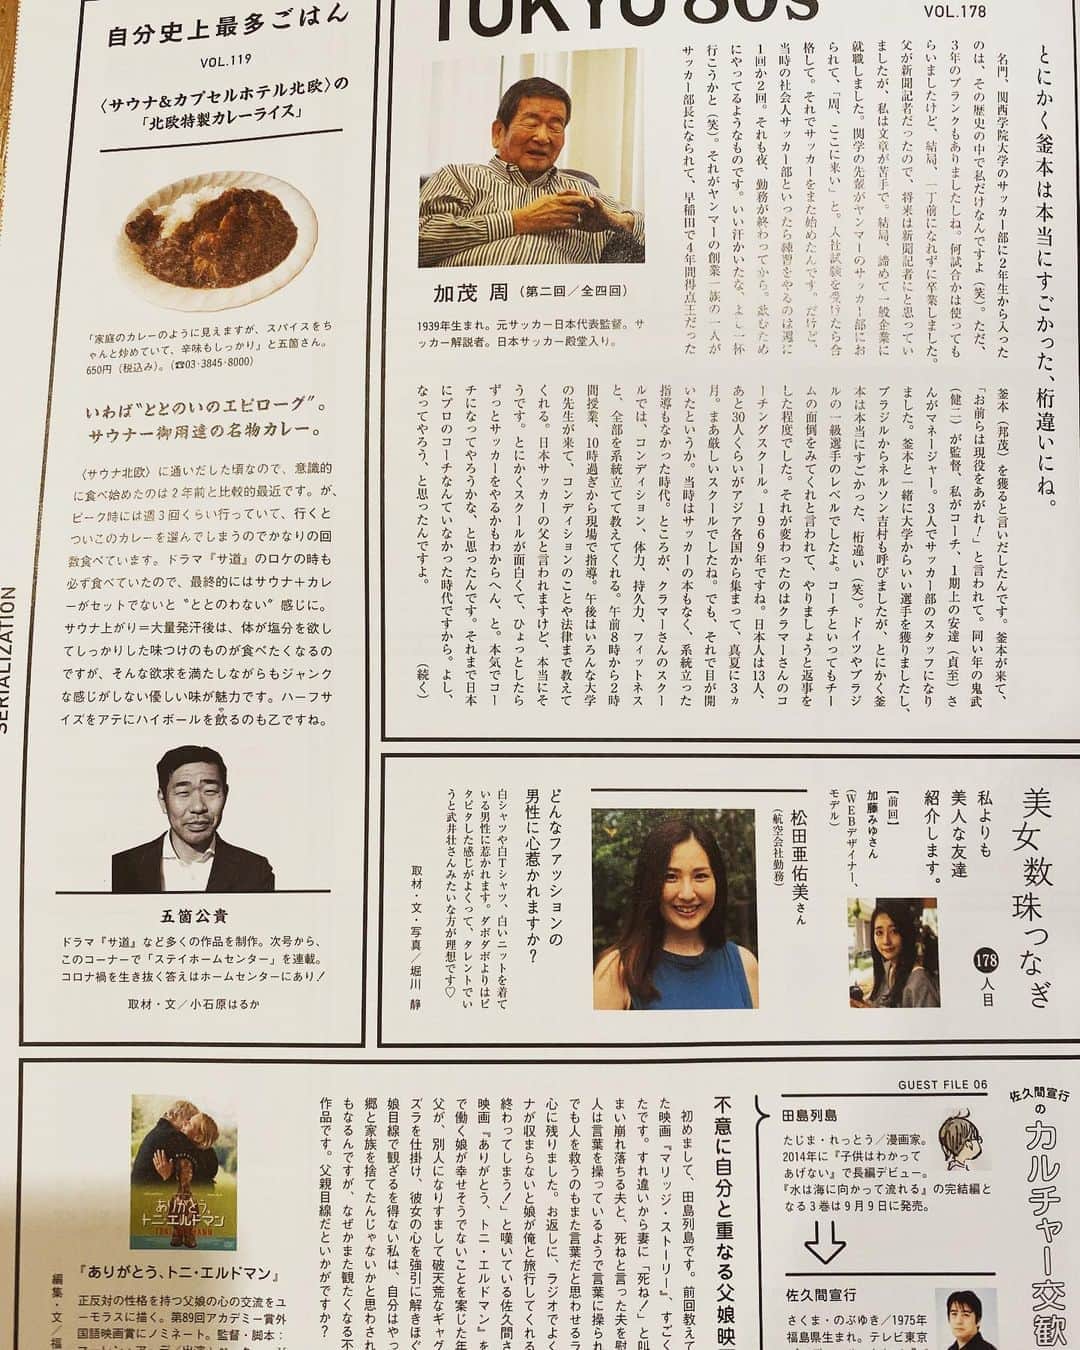 自分史上最多ごはん
VOL.119
〈サウナ&カプセルホテル北欧〉の
「北欧特製カレーライス」
「家庭のカレーのように見えますが、スパイスをち
ゃんと炒めていて、辛味もしっかり」と五箇さん。
650円（税込み）。（☎03・3845・8000）
いわば“ととのいのエピローグ”。
サウナー御用達の名物カレー。
〈サウナ北欧〉に通いだした頃なので、意識的
に食べ始めたのは2年前と比較的最近です。が、
ピーク時には週3回くらい行っていて、行くと
ついこのカレーを選んでしまうのでかなりの回
数食べています。ドラマ『サ道』のロケの時も
必ず食べていたので、最終的にはサウナ＋カレ
ーがセットでないと“ととのわない”感じに。
サウナ上がり＝大量発汗後は、体が塩分を欲し
てしっかりした味つけのものが食べたくなるの
ですが、そんな欲求を満たしながらもジャンク
な感じがしない優しい味が魅力です。ハーフサ
イズをアテにハイボールを飲るのも乙ですね。
五箇公貴
ドラマ『サ道』など多くの作品を制作。次号から、
このコーナーで「ステイホームセンター」を連載。
コロナ禍を生き抜く答えはホームセンターにあり！
取材・文／小石原はるか
SERIALIZATION
TOKYO 80s
VOL.178
とにかく釜本は本当にすごかった、桁違いにね。
名門、関西学院大学のサッカー部に2年生から入った
のは、その歴史の中で私だけなんですよ（笑）。ただ、
3年のブランクもありましたしね。何試合かは使っても
らいましたけど、結局、一丁前になれずに卒業しました。
父が新聞記者だったので、将来は新聞記者にと思ってい
ましたが、私は文章が苦手で。結局、諦めて一般企業に
就職しました。関学の先輩がヤンマーのサッカー部にお
られて、「周、ここに来い」と。入社試験を受けたら合
格して。それでサッカーをまた始めたんです。だけど、
当時の社会人サッカー部といったら練習をやるのは週に
1回か2回。それも夜、勤務が終わってから。飲むため
にやってるようなものです。いい汗かいたな、よし一杯
行こうかと（笑）。それがヤンマーの創業一族の一人が
サッカー部長になられて、早稲田で4年間得点王だった
加茂 周（第二回／全四回）
1939年生まれ。元サッカー日本代表監督。サ
ッカー解説者。日本サッカー殿堂入り。
釜本（邦茂）を獲ると言いだしたんです。釜本が来て、
「お前らは現役をあがれ！」と言われて。同い年の鬼武
（健二）が監督、私がコーチ、1期上の安達（貞至）さ
んがマネージャー。3人でサッカー部のスタッフになり
ました。釜本と一緒に大学からいい選手を獲りましたし、
ブラジルからネルソン吉村も呼びましたが、とにかく釜
本は本当にすごかった、桁違い（笑）。ドイツやブラジ
ルの一級選手のレベルでしたよ。コーチといってもチー
ムの面倒をみてくれと言われて、やりましょうと返事を
した程度でした。それが変わったのはクラマーさんのコ
ーチングスクール。1969年ですね。日本人は13人、
あと30人くらいがアジア各国から集まって、真夏に3ヵ
月。まあ厳しいスクールでしたね。でも、それで目が開
いたというか。当時はサッカーの本もなく、系統立った
指導もなかった時代。ところが、クラマーさんのスクー
ルでは、コンディション、体力、持久力、フィットネス
と、全部を系統立てて教えてくれる。午前8時から2時
間授業、10時過ぎから現場で指導。午後はいろんな大学
の先生が来て、コンディションのことや法律まで教えて
くれる。日本サッカーの父と言われますけど、本当にそ
うです。とにかくスクールが面白くて、ひょっとしたら
ずっとサッカーをやるかもわからへん、と。本気でコー
チになってやろうかな、と思ったんです。それまで日本
にプロのコーチなんていなかった時代ですから。よし、
なってやろう、と思ったんですよ。（続く）
美女数珠つなぎ
178人目
私よりも
美人な友達
紹介します。
【前回】
加藤みゆさん
（WEBデザイナー、
モデル）
松田亜佑美さん
（航空会社勤務）
どんなファッションの
男性に心惹かれますか？
白シャツや白Tシャツ、白いニットを着て
いる男性に惹かれます。ダボダボよりはピ
タピタした感じがよくって、タレントでい
うと武井壮さんみたいな方が理想です♡
取材・文・写真／堀川 静
佐久間宣行の
カルチャー交歓
GUEST FILE 06
田島列島
たじま・れっとう／漫画家。
2014年に『子供はわかって
あげない』で長編デビュー。
『水は海に向かって流れる』の完結編と
なる3巻は9月9日に発売。
佐久間宣行
さくま・のぶゆき／1975年
福島県生まれ。テレビ東京
不意に自分と重なる父娘映
初めまして、田島列島です。前回教えて
た映画『マリッジ・ストーリー』、すごく
たです。すれ違いから妻に「死ね！」と叫
まい崩れ落ちる夫と、死ねと言った夫を慰
人は言葉を操っているようで言葉に操られ
でも人を救うのもまた言葉だと思わせるラ
心に残りました。お返しに、ラジオでよく
ナが収まらないと娘が俺と旅行してくれる
終わってしまう！」と嘆いている佐久間さ
映画『ありがとう、トニ・エルドマン』を
で働く娘が幸せそうでないことを案じた年
父が、別人になりすまして破天荒なギャグ
ズラを仕掛け、彼女の心を強引に解きほぐ
娘目線で観ざるを得ない私は、自分はやっ
郷と家族を捨てたんじゃないかと思わされ
もなるんですが、なぜかまた観たくなる不
作品です。父親目線だといかがですか？
ありがとう、
トニ・エルドマン
『ありがとう、トニ・エルドマン』
正反対の性格を持つ父娘の心の交流をユ
ーモラスに描く。第89回アカデミー賞外
国語映画賞にノミネート。監督・脚本：
編集・文／福